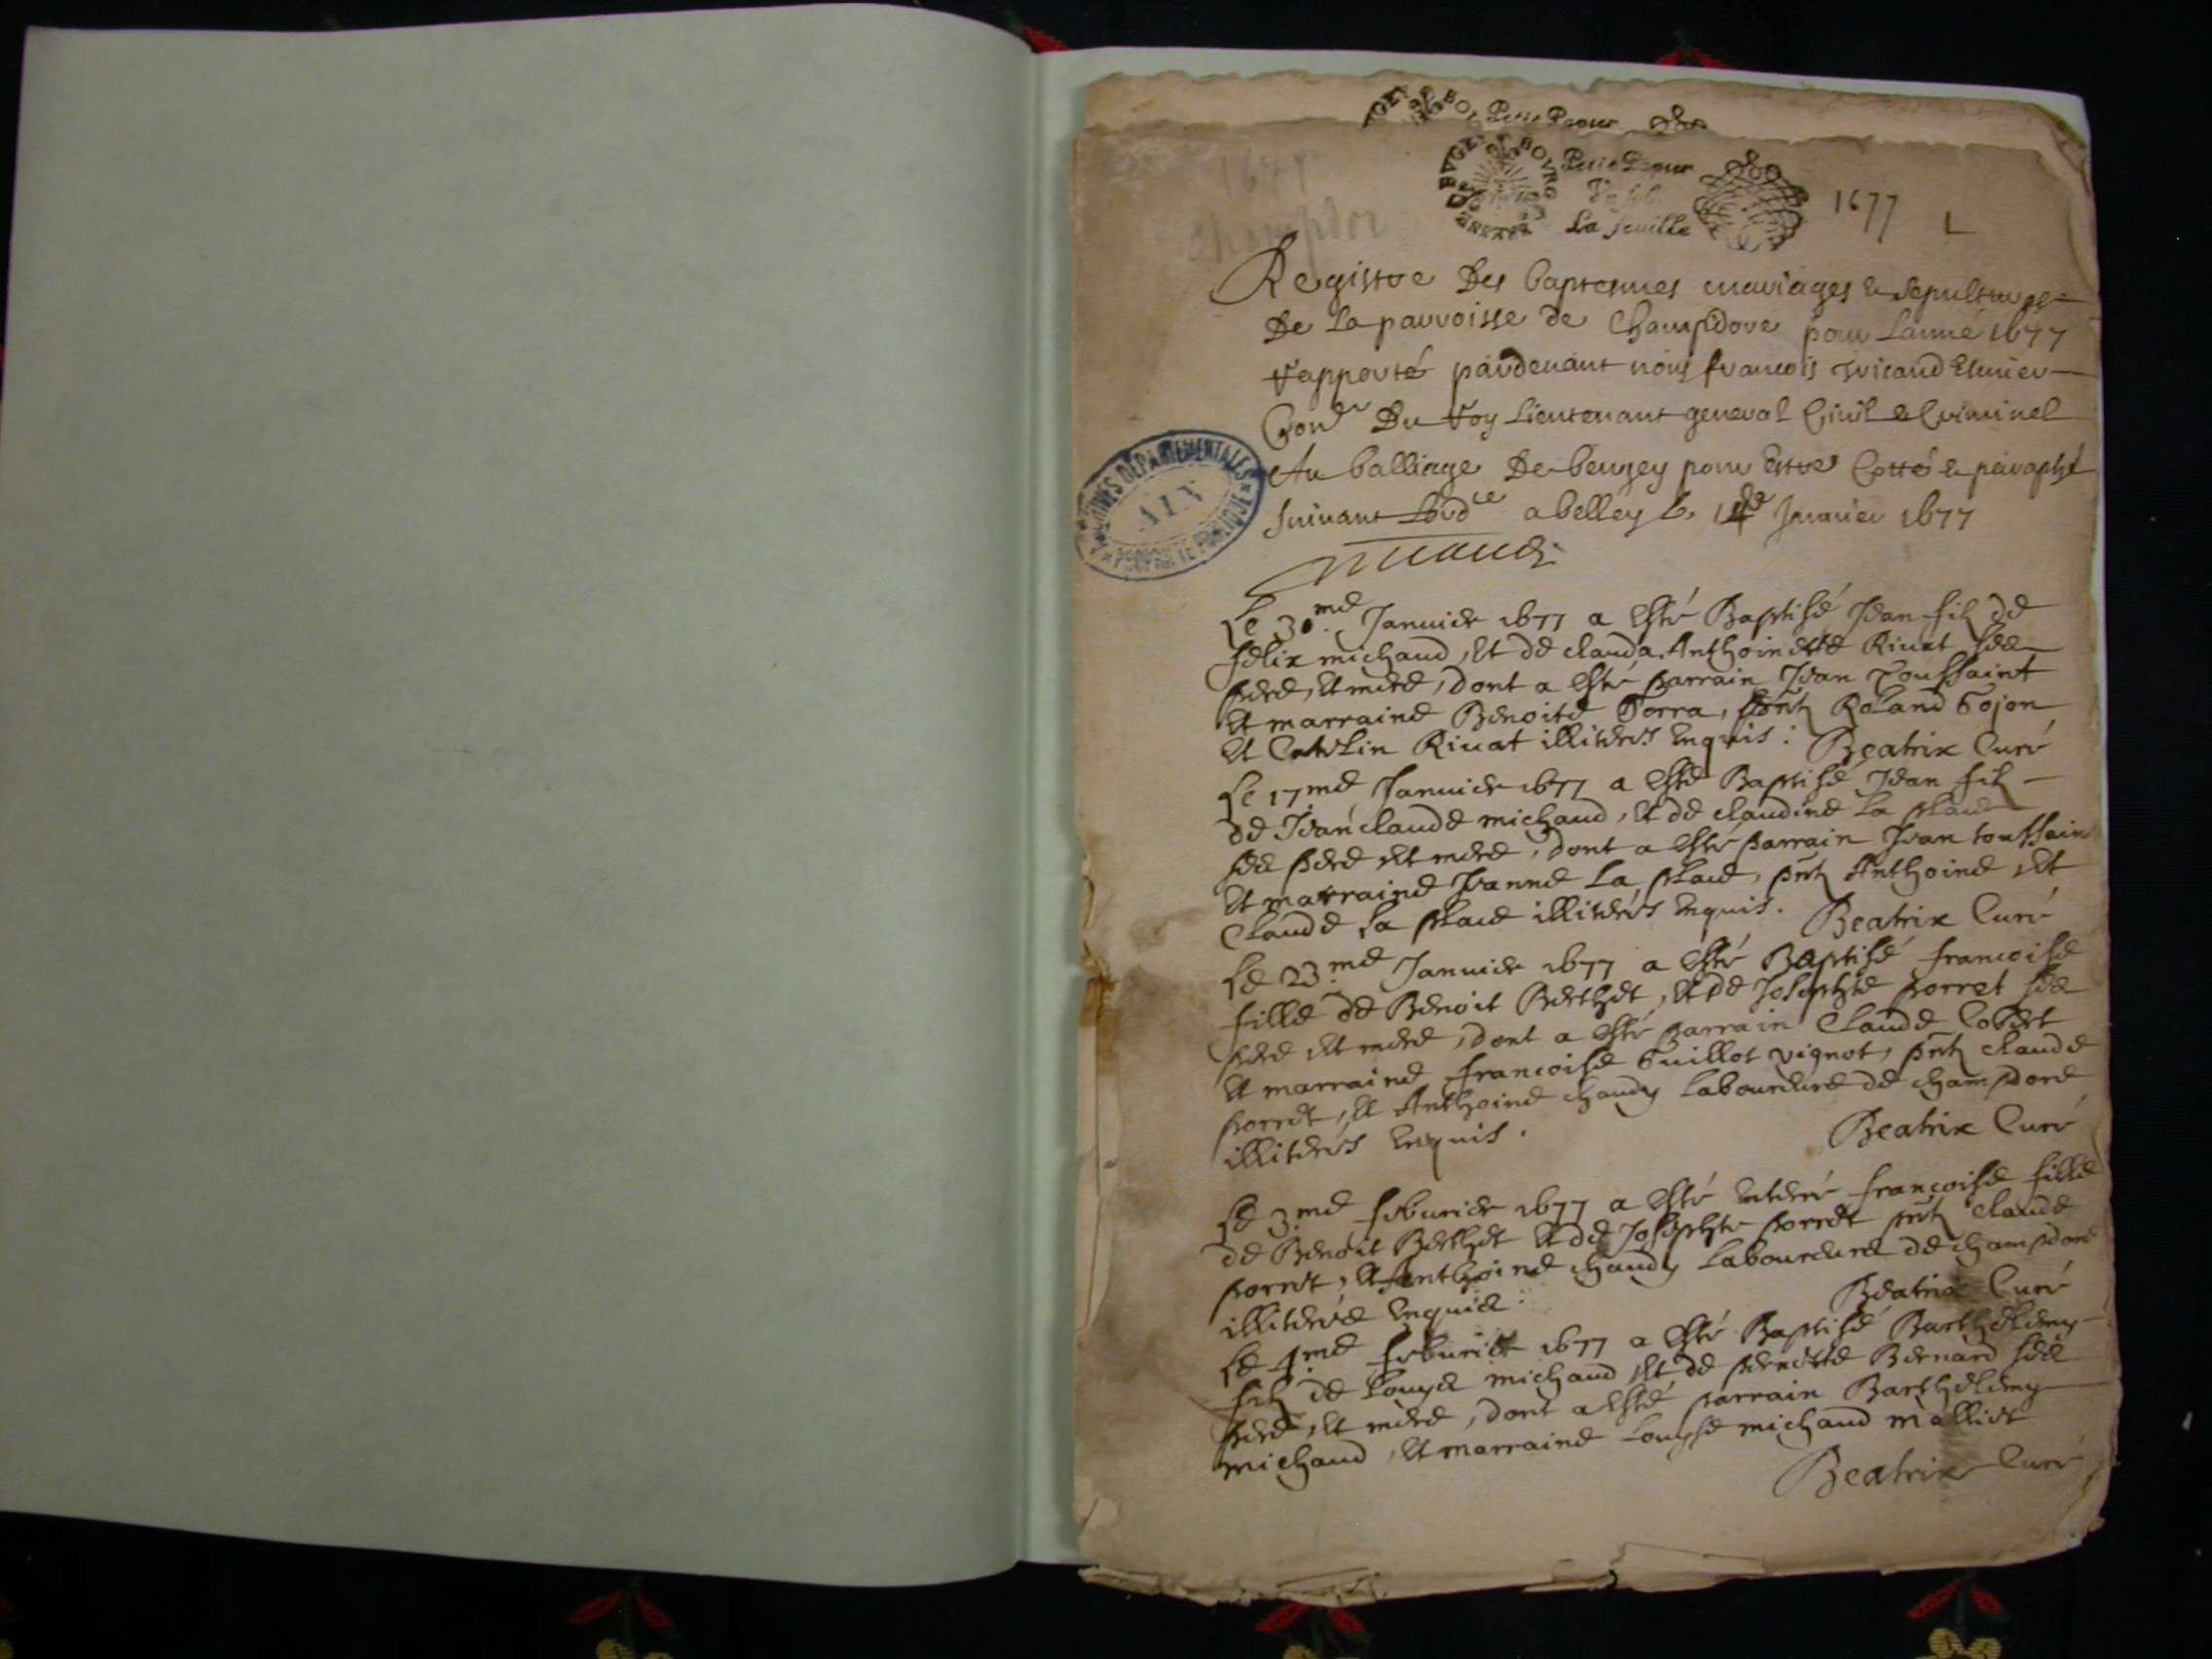 BVGEY BOVRG
Petit Papier
La feuille
1677
Registre Des baptesmes mariages & sepultures
De La parroisse de Champdore pour Lannée 1677
rapporté pardevant nous francois Escuier
Conr Du Roy Lieutenant general Civil & Criminel
Au balliage De beugey pour Estre Cotté & paraphé
suivant Lordce a belley le Janvier 1677
ARCHIVES DEPARTEMENTALES
AIN
PROPRIETE PUBLIQUE
Le 3.me Januier 1677 a esté Baptisé Jean filz de
felix michaud, et de clauda Anthoinette Riuat ses
pere, et mere, dont a esté parrain Jean Toussaint
et marraine Benoite Gorra, pñtz Roland Gojon
et Catelin Riuat illiterés enquis. Beatrix Curé
Le 17me Januier 1677 a esté Baptisé Jean filz
de Jean claude michaud, et de claudine La place
ses pere et mere, dont a esté parrain Jean toussain
et marraine Jeanne La place, pñtz Anthoine et
Claude La place illiterés enquis. Beatrix Curé
Le 23.me Januier 1677 a esté Baptisé francoise
fille de Benoit Berthet, et de Josephte porret ses
pere et mere, dont a esté parrain Claude Cobet
et marraine francoise Guillot vignot, pñtz claude
porret, et Anthoine chaudy Laboureurs de champdore
illiterés enquis. Beatrix Curé
Le 3.me feburier 1677 a esté enterré francoise fille
de Benoit Berthet et de Josephte porret pñtz claude
porret, et Anthoine chaudy Laboureurs de champdore
illiterés enquis. Beatrix Curé
Le 4.me feburier 1677 a esté Baptisé Barthelemy
filz de Louys michaud et de pernette Bernard ses
pere, et mere, dont a esté parrain Barthelemy
michaud, et marraine Louyse michaud malliet
Beatrix Curé